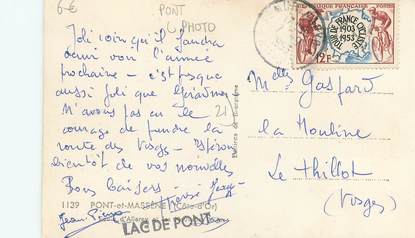 6€
PONT
PHOTO
Joli coin qu'il faudra
venir voir l'année
prochaine - c'est presque
aussi joli que Gérardmer
N'avons pas eu le
courage de prendre la
route des Vosges - Espérons
bientôt de vos nouvelles
Bons baisers -
21
1139 PONT-et-MASSÈNE (Côte-d'Or)
LAC DE PONT
RÉPUBLIQUE FRANÇAISE POSTES
TOUR DE FRANCE CYCLISTE
1903
1953
12F
Melles Gaspard
La Mouline
Le Thillot
(Vosges)